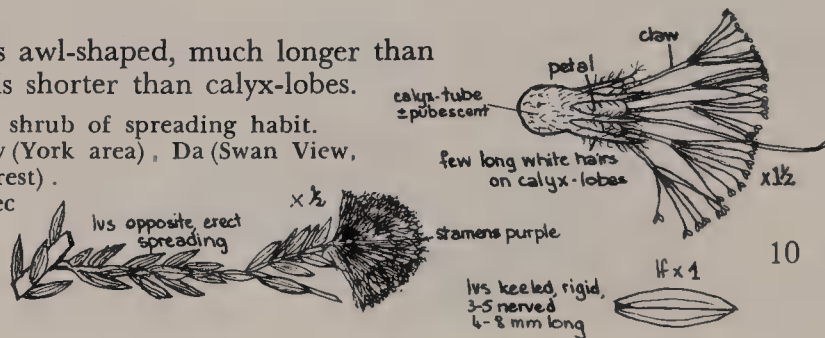 s awl-shaped, much longer than
is shorter than calyx-lobes.
shrub of spreading habit.
(York area), Da (Swan View,
rest).
ec
lvs opposite, erect
spreading
x ½
stamens purple
claw
petal
calyx-tube
±pubescent
few long white hairs
on calyx-lobes
x1½
10
lf x 1
lvs keeled, rigid,
3-5 nerved
4-8 mm long